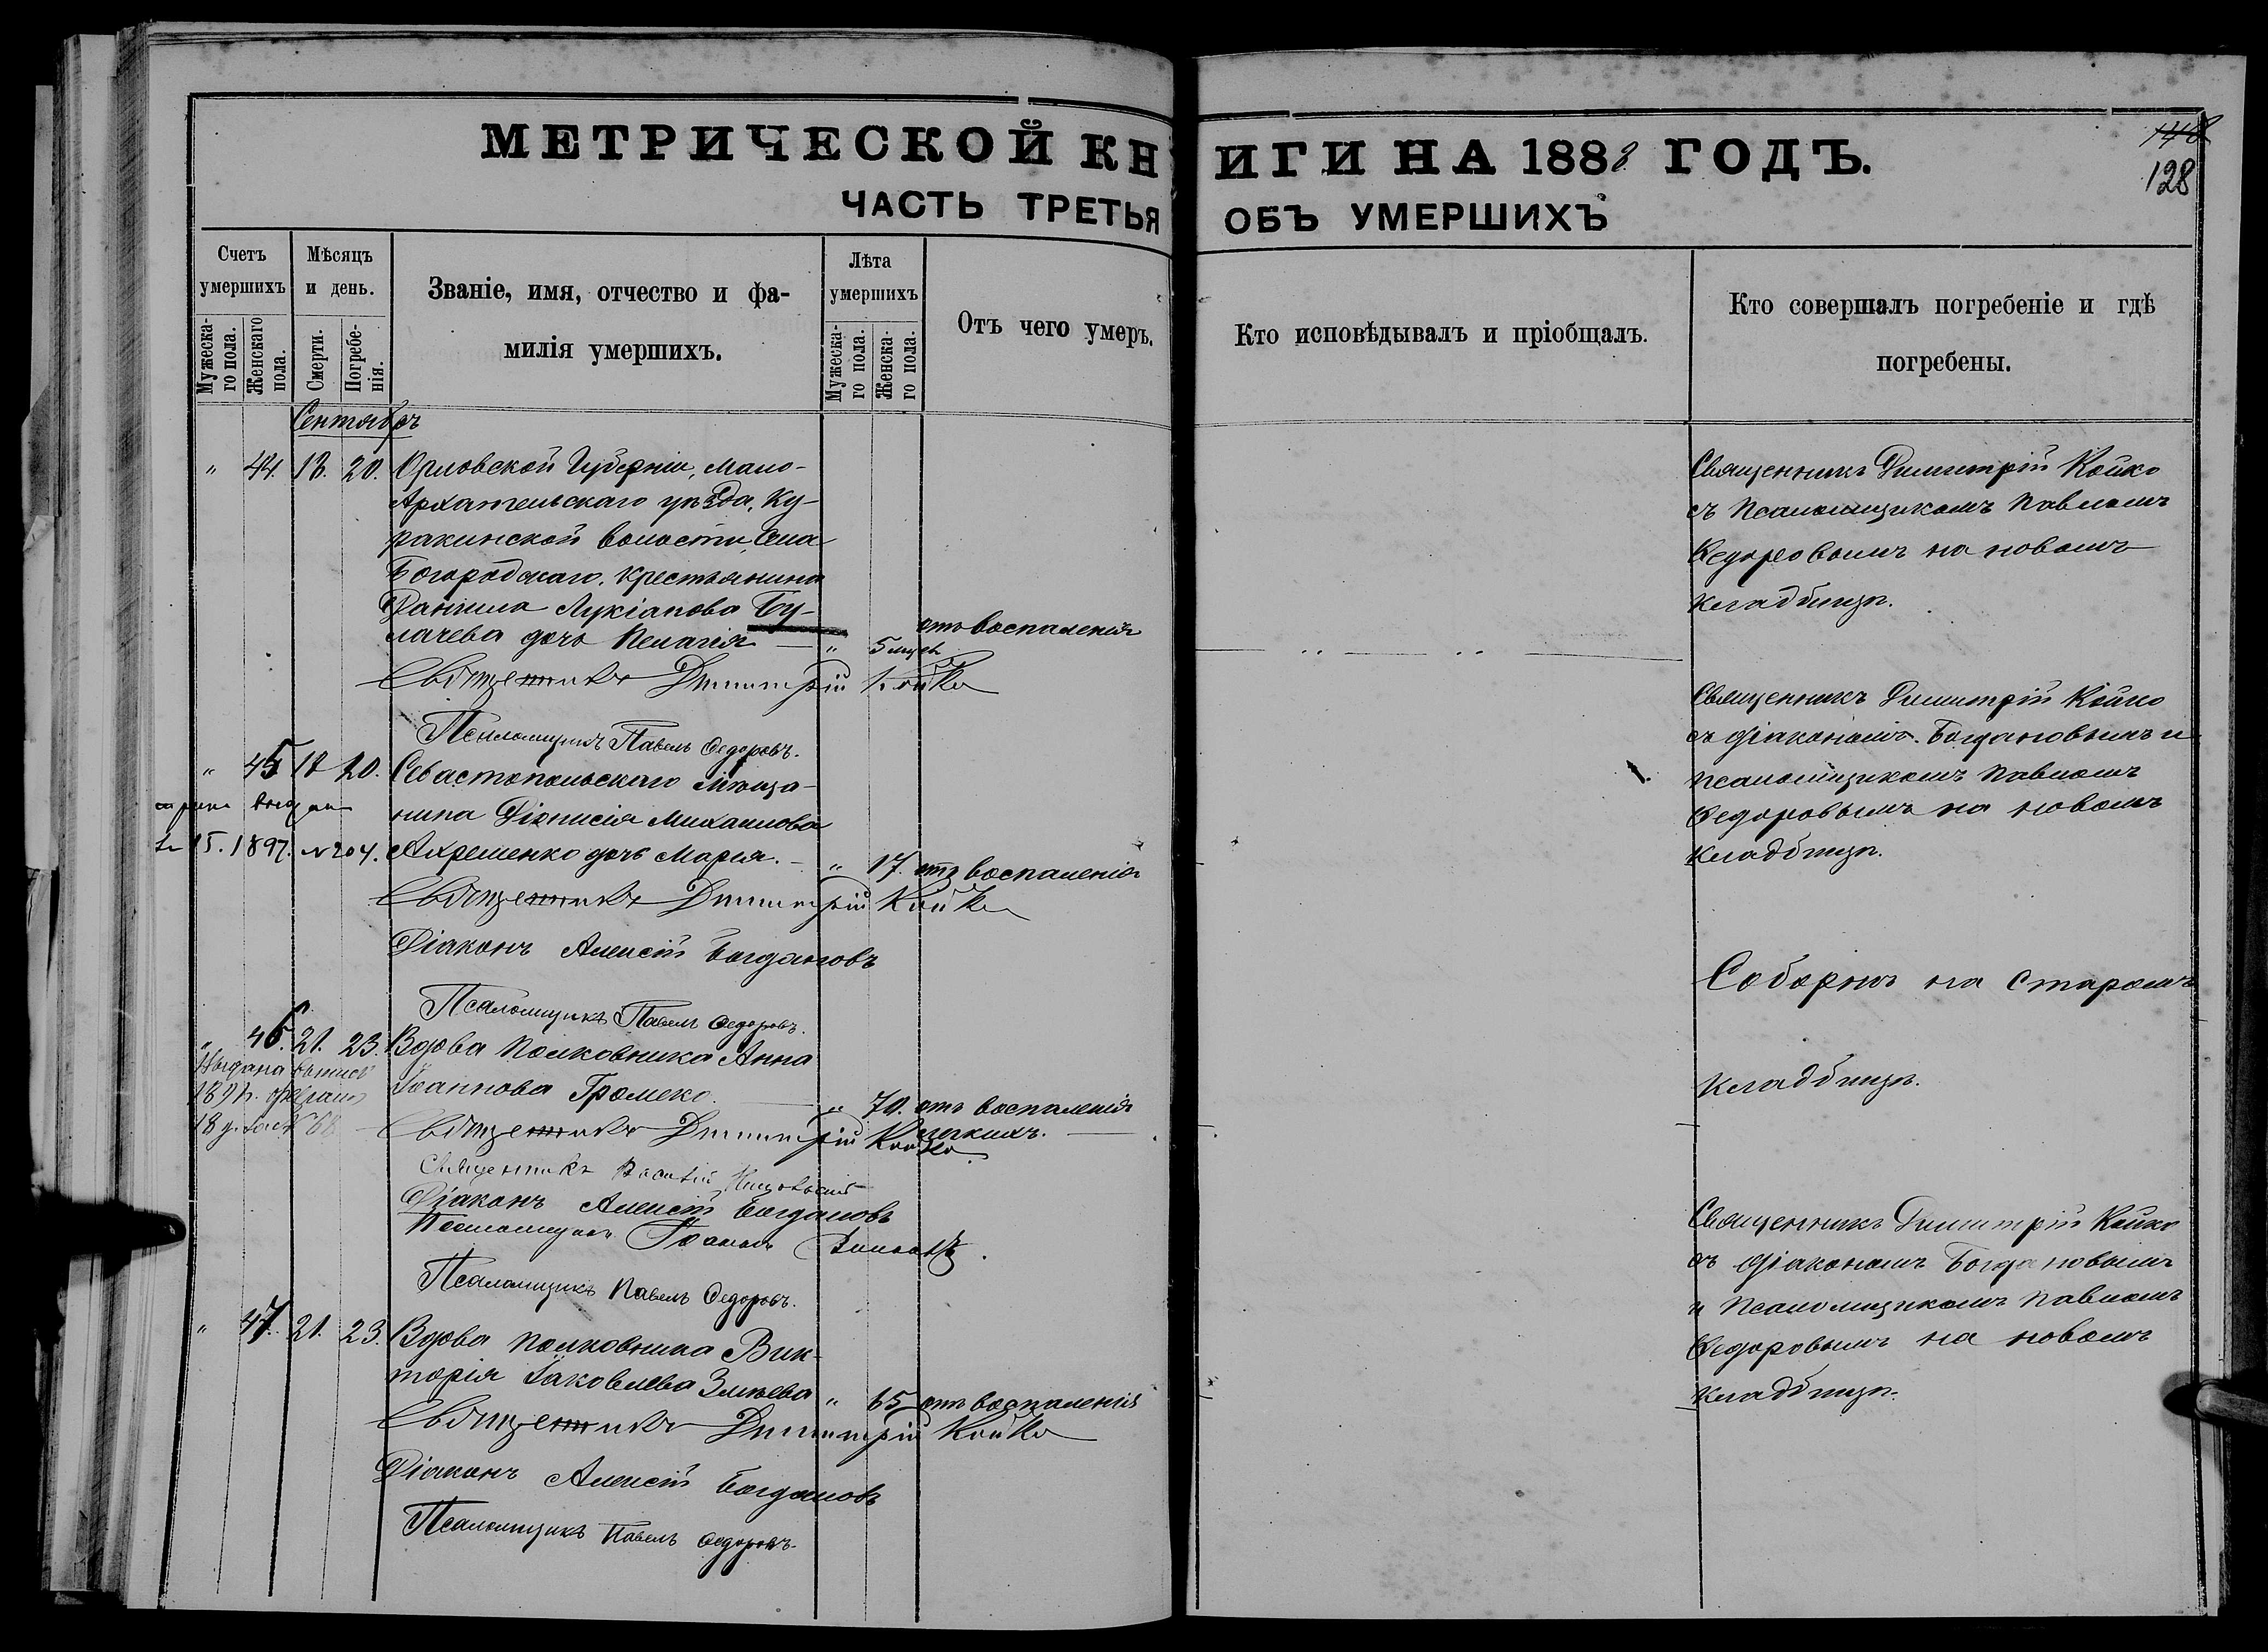 МЕТРИЧЕСКОЙ КНИГИ НА 1888 ГОДЪ.
148
128
ЧАСТЬ ТРЕТЬЯ ОБЪ УМЕРШИХЪ
Счетъ умершихъ
Мужескаго пола.
Женскаго пола.
Мѣсяцъ и день.
Смерти.
Погребенія.
Званіе, имя, отчество и фамилія умершихъ.
Лѣта умершихъ
Мужескаго пола.
Женскаго пола.
Отъ чего умеръ.
Кто исповѣдывалъ и пріобщалъ.
Кто совершалъ погребеніе и гдѣ погребены.
Сентябрь
" 44. 18. 20. Орловской Губерніи, Мало-
Архангельскаго уѣзда, Ку-
ракинской волости, села
Богородскаго, крестьянина
Даніила Лукіанова Бу-
лачева дочь Пелагія — " 5 мѣсц. отъ воспаленія
Священникъ Димитрій Койко
Псаломщикъ Павелъ Федоровъ.
Священникъ Димитрій Койко
съ Псаломщикомъ Павломъ
Федоровымъ на новомъ
кладбищѣ.
" 45 18 20. Севастопольскаго мѣща-
нина Діонисія Михаилова
Ахременко дочь Марія. — " 17. отъ воспаленія
15. 1897. № 204.
Священникъ Димитрій Койко
Діаконъ Алексій Богдановъ
Псаломщикъ Павелъ Федоровъ.
Священникъ Димитрій Койко
съ діакономъ Богдановымъ и
псаломщикомъ Павломъ
Федоровымъ на новомъ
кладбищѣ.
" 46. 21. 23. Вдова Полковника Анна
Іоаннова Громеко. " 70. отъ воспаленія
легкихъ.
Выдана
18
Священникъ Димитрій Койко
Священникъ Василій
Діаконъ Алексій Богдановъ
Псаломщикъ Іоаннъ
Псаломщикъ Павелъ Федоровъ.
Соборнѣ на Старомъ
кладбищѣ.
" 47. 21. 23. Вдова Полковника Вик-
торія Іаковлева Змѣева " 65 отъ воспаленія
Священникъ Димитрій Койко
Діаконъ Алексій Богдановъ
Псаломщикъ Павелъ Федоровъ.
Священникъ Димитрій Койко
съ діакономъ Богдановымъ
и Псаломщикомъ Павломъ
Федоровымъ на новомъ
кладбищѣ.